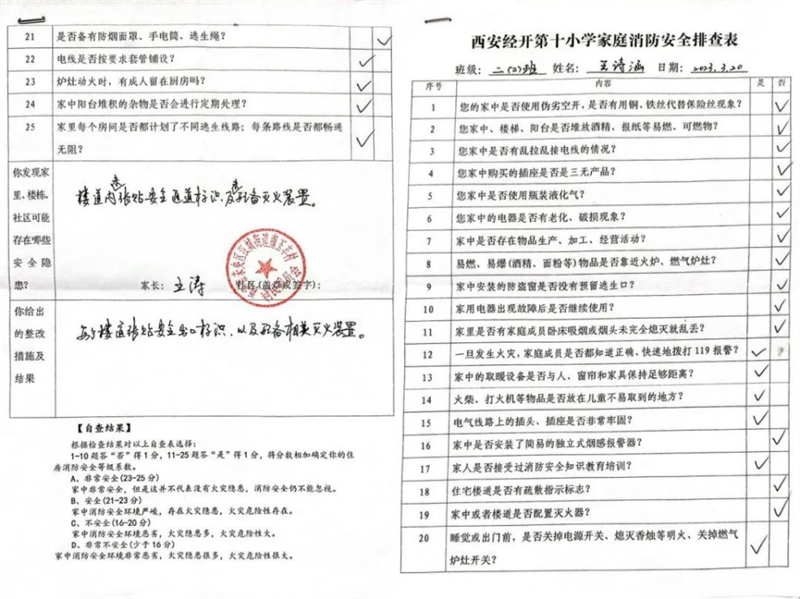 21 是否备有防烟面罩、手电筒、逃生绳？
22 电线是否按要求套管铺设？ ✓
23 炉灶动火时，有成人留在厨房吗？ ✓
24 家中阳台堆积的杂物是否会进行定期处理？ ✓
25 家里每个房间是否都计划了不同逃生线路；每条路线是否都畅通
无阻？ ✓
你发现家
里、楼栋、
社区可能
存在哪些
安全隐
患？
楼道内张贴安全通道标识，及配备灭火装置。
家长：王涛 社区(盖章或签字)：
你给出
的整改
措施及
结果
楼道张贴安全出口标识，以及配备相关灭火装置。
【自查结果】
根据检查结果对以上自查表选择：
1-10题答“否”得1分，11-25题答“是”得1分，将分数相加确定你的住
房消防安全等级系数。
A、非常安全(23-25分)
家中非常安全，但是这并不代表没有火灾隐患，消防安全仍不能忽视。
B、安全(21-23分)
家中消防安全环境严峻，存在火灾隐患，火灾危险性存在。
C、不安全(16-20分)
家中消防安全环境恶害，火灾隐患多，火灾危险性大。
D、非常不安全(少于16分)
家中消防安全环境非常恶害，火灾隐患很多，火灾危险性很大。
西安经开第十小学家庭消防安全排查表
班级：二(2)班 姓名：王诗涵 日期：2023.3.20
序号 内容 是 否
1 您的家中是否使用伪劣空开，是否有用铜、铁丝代替保险丝现象？ ✓
2 您家中、楼梯、阳台是否堆放酒精、报纸等易燃、可燃物？ ✓
3 您家中是否有乱拉乱接电线的情况？ ✓
4 您家中购买的插座是否是三无产品？ ✓
5 您家中是否使用瓶装液化气？ ✓
6 您家中的电器是否有老化、破损现象？ ✓
7 家中是否存在物品生产、加工、经营活动？ ✓
8 易燃、易爆(酒精、面粉等)物品是否靠近火炉、燃气炉灶？ ✓
9 家中安装的防盗窗是否没有预留逃生口？ ✓
10 家用电器出现故障后是否继续使用？ ✓
11 家里是否有家庭成员卧床吸烟或烟头未完全熄灭就乱丢？ ✓
12 一旦发生火灾，家庭成员是否都知道正确、快速地拨打119报警？ ✓
13 家中的取暖设备是否与人、窗帘和家具保持足够距离？ ✓
14 火柴、打火机等物品是否放在儿童不易取到的地方？ ✓
15 电气线路上的插头、插座是否非常牢固？ ✓
16 家中是否安装了简易的独立式烟感报警器？ ✓
17 家人是否接受过消防安全知识教育培训？ ✓
18 住宅楼道是否有疏散指示标志？ ✓
19 家中或者楼道是否配置灭火器？ ✓
20 睡觉或出门前，是否关掉电源开关、熄灭香烛等明火、关掉燃气
炉灶开关？ ✓